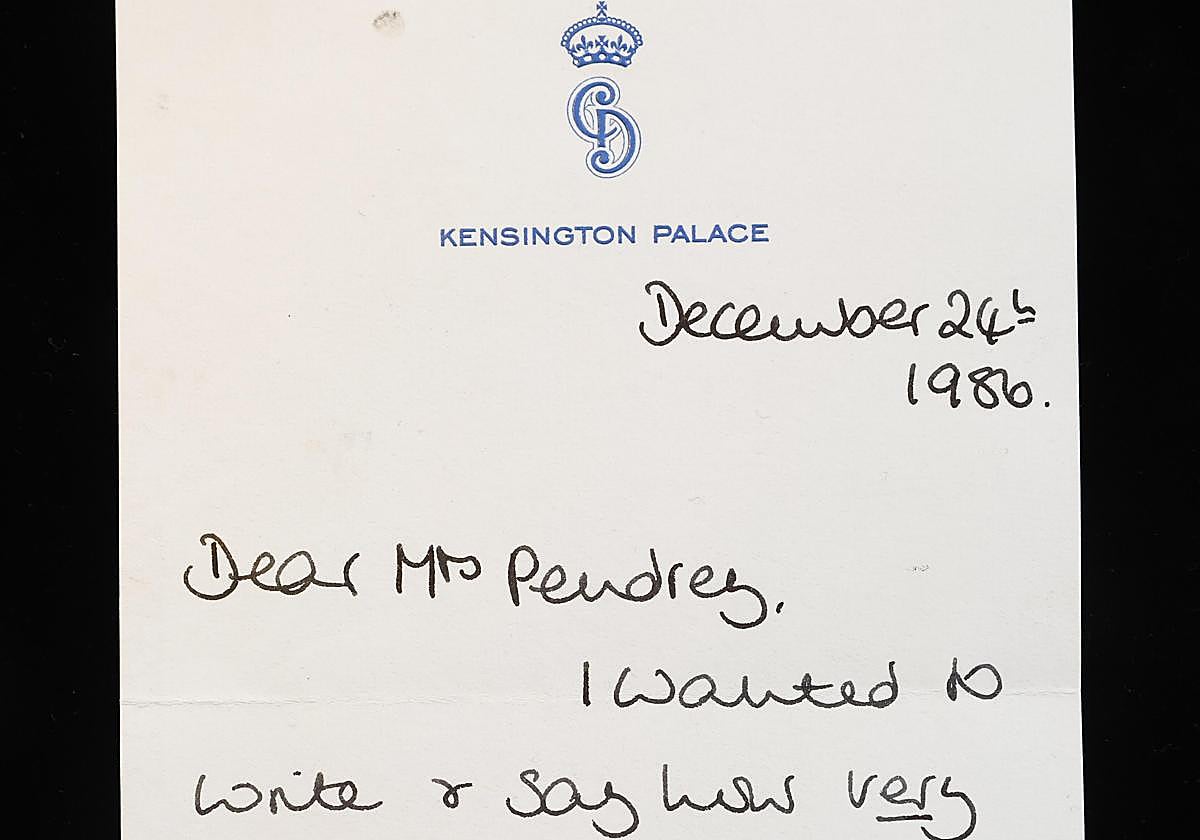 CD
KENSINGTON PALACE
December 24th
1986.
Dear Mrs Pendrey,
I wanted to
write & say how very